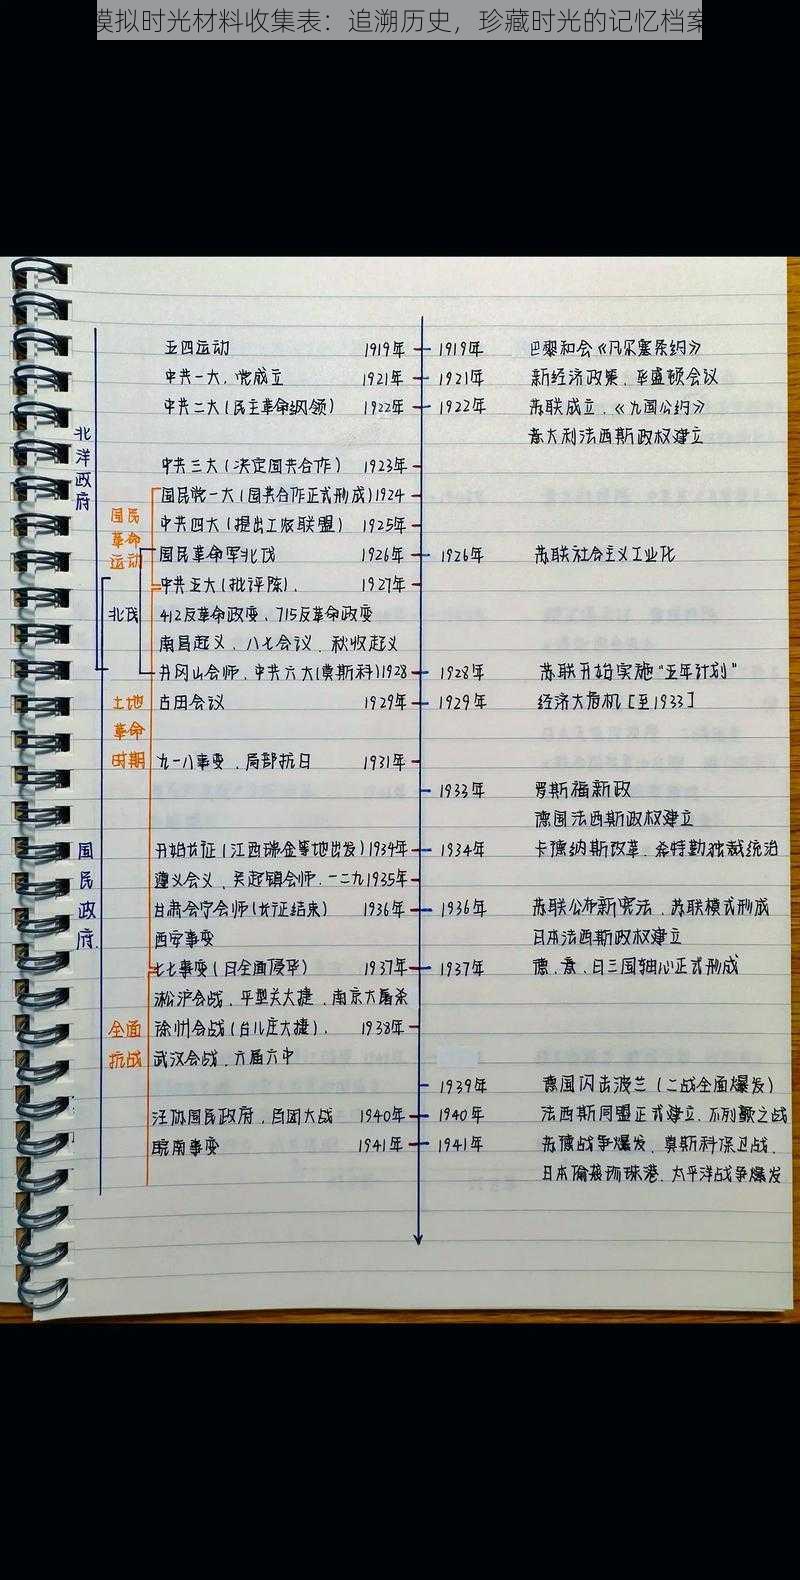 模拟时光材料收集表：追溯历史，珍藏时光的记忆档案
五四运动 1919年 1919年 巴黎和会《凡尔塞条约》
中共一大、党成立 1921年 1921年 新经济政策、华盛顿会议
中共二大（民主革命纲领） 1922年 1922年 苏联成立、《九国公约》
意大利法西斯政权建立
北洋政府
中共三大（决定国共合作） 1923年
国民党一大（国共合作正式形成）1924
国民革命运动
中共四大（提出工农联盟） 1925年
国民革命军北伐 1926年 1926年 苏联社会主义工业化
中共五大（批评陈）、 1927年
北伐
412反革命政变、715反革命政变
南昌起义、八七会议、秋收起义
井冈山会师、中共六大（莫斯科）1928 1928年 苏联开始实施“五年计划”
土地革命时期
古田会议 1929年 1929年 经济大危机［至1933］
九一八事变、局部抗日 1931年
1933年 罗斯福新政
德国法西斯政权建立
国民政府
开始长征（江西瑞金等地出发）1934年 1934年 卡德纳斯改革、希特勒独裁统治
遵义会议、吴起镇会师、一二九1935年
甘肃会宁会师（长征结束） 1936年 1936年 苏联公布新宪法、苏联模式形成
西安事变 日本法西斯政权建立
七七事变（日全面侵华） 1937年 1937年 德、意、日三国轴心正式形成
淞沪会战、平型关大捷、南京大屠杀
全面抗战
徐州会战（台儿庄大捷）、 1938年
武汉会战、六届六中
1939年 德国闪击波兰（二战全面爆发）
汪伪国民政府、百团大战 1940年 1940年 法西斯同盟正式建立、不列颠之战
皖南事变 1941年 1941年 苏德战争爆发、莫斯科保卫战、
日本偷袭珍珠港、太平洋战争爆发